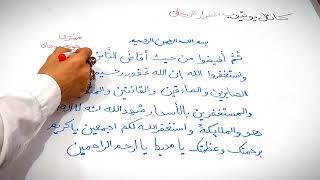 بسم الله الرحمن الرحيم
ثم أفيضوا من حيث أفاض الناس
واستغفروا الله ان الله غفور رحيم
الصابرين والصادقين والقانتين والمنفقين
والمستغفرين بالأسحار شهد الله انه لا اله الا
هو والملائكة واستغفر الله لكم اجمعين يا كريم
برحمتك وعظمتك يا يا ارحم الراحمين